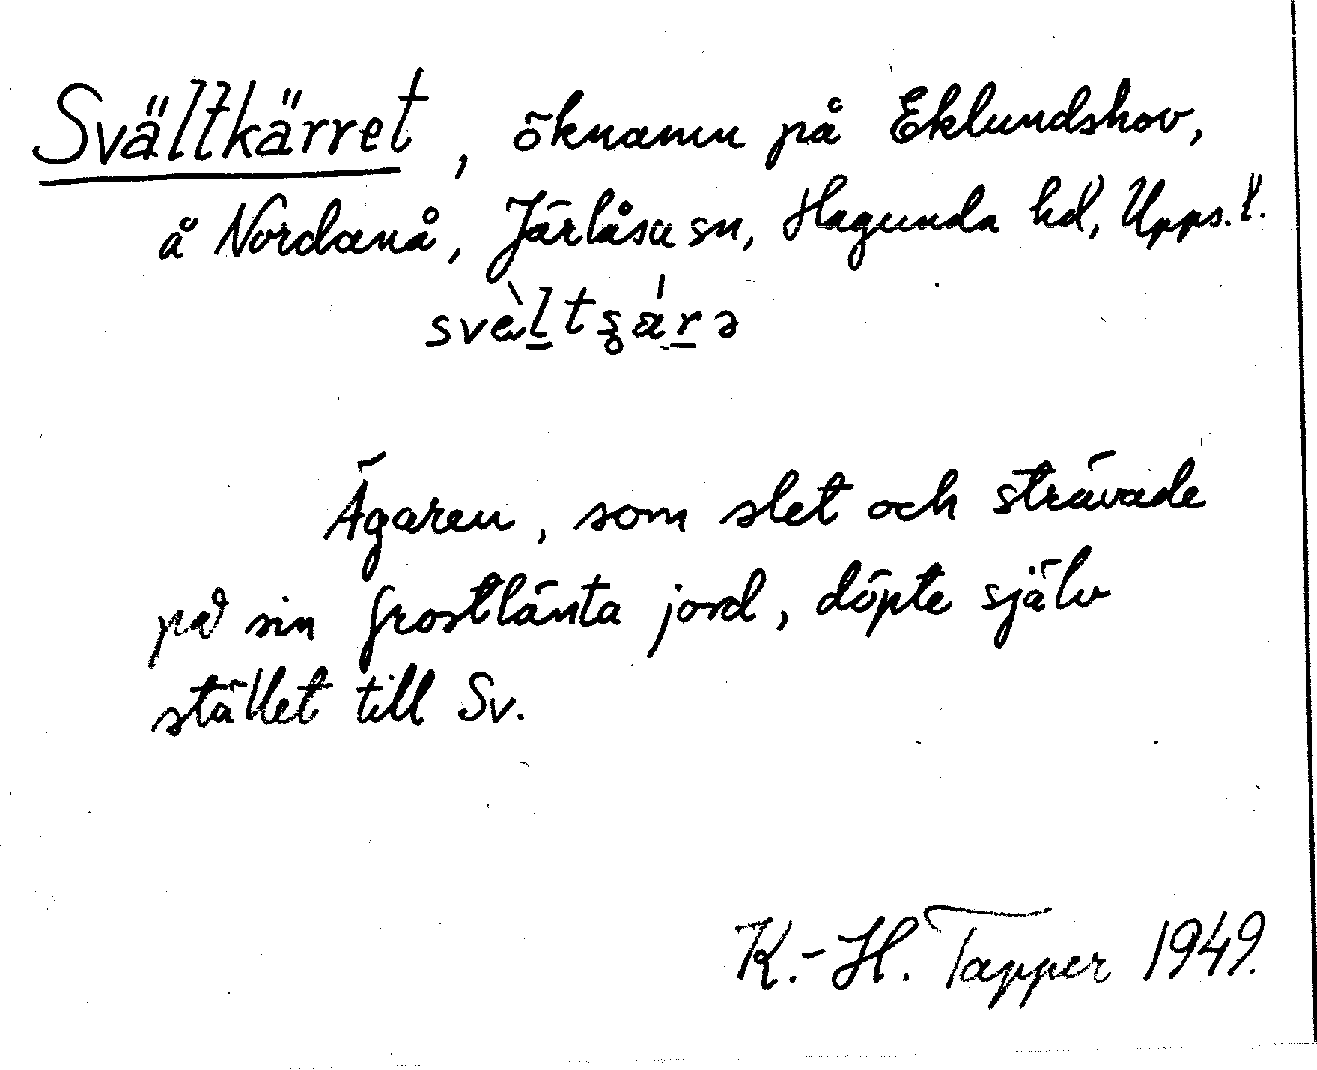 Svältkärret, öknamn på Eklundshov,
å Nordanå, Järlåsa sn, Hagunda hd, Upps. l.
Ägaren, som slet och strävade
på sin frostlänta jord, döpte själv
stället till Sv.
K.-H. Tapper 1949.